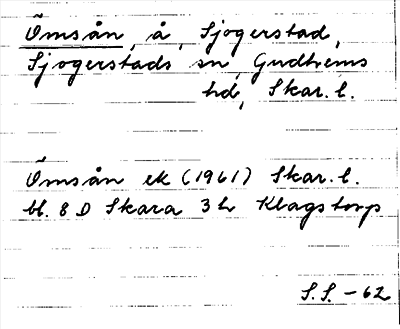 Ömsån, å, Sjogerstad,
Sjogerstads sn, Gudhems
hd, Skar. l.
Ömsån ek (1961) Skar. l.
bl. 8 D Skara 3 h Klagstorp
S.S. - 62